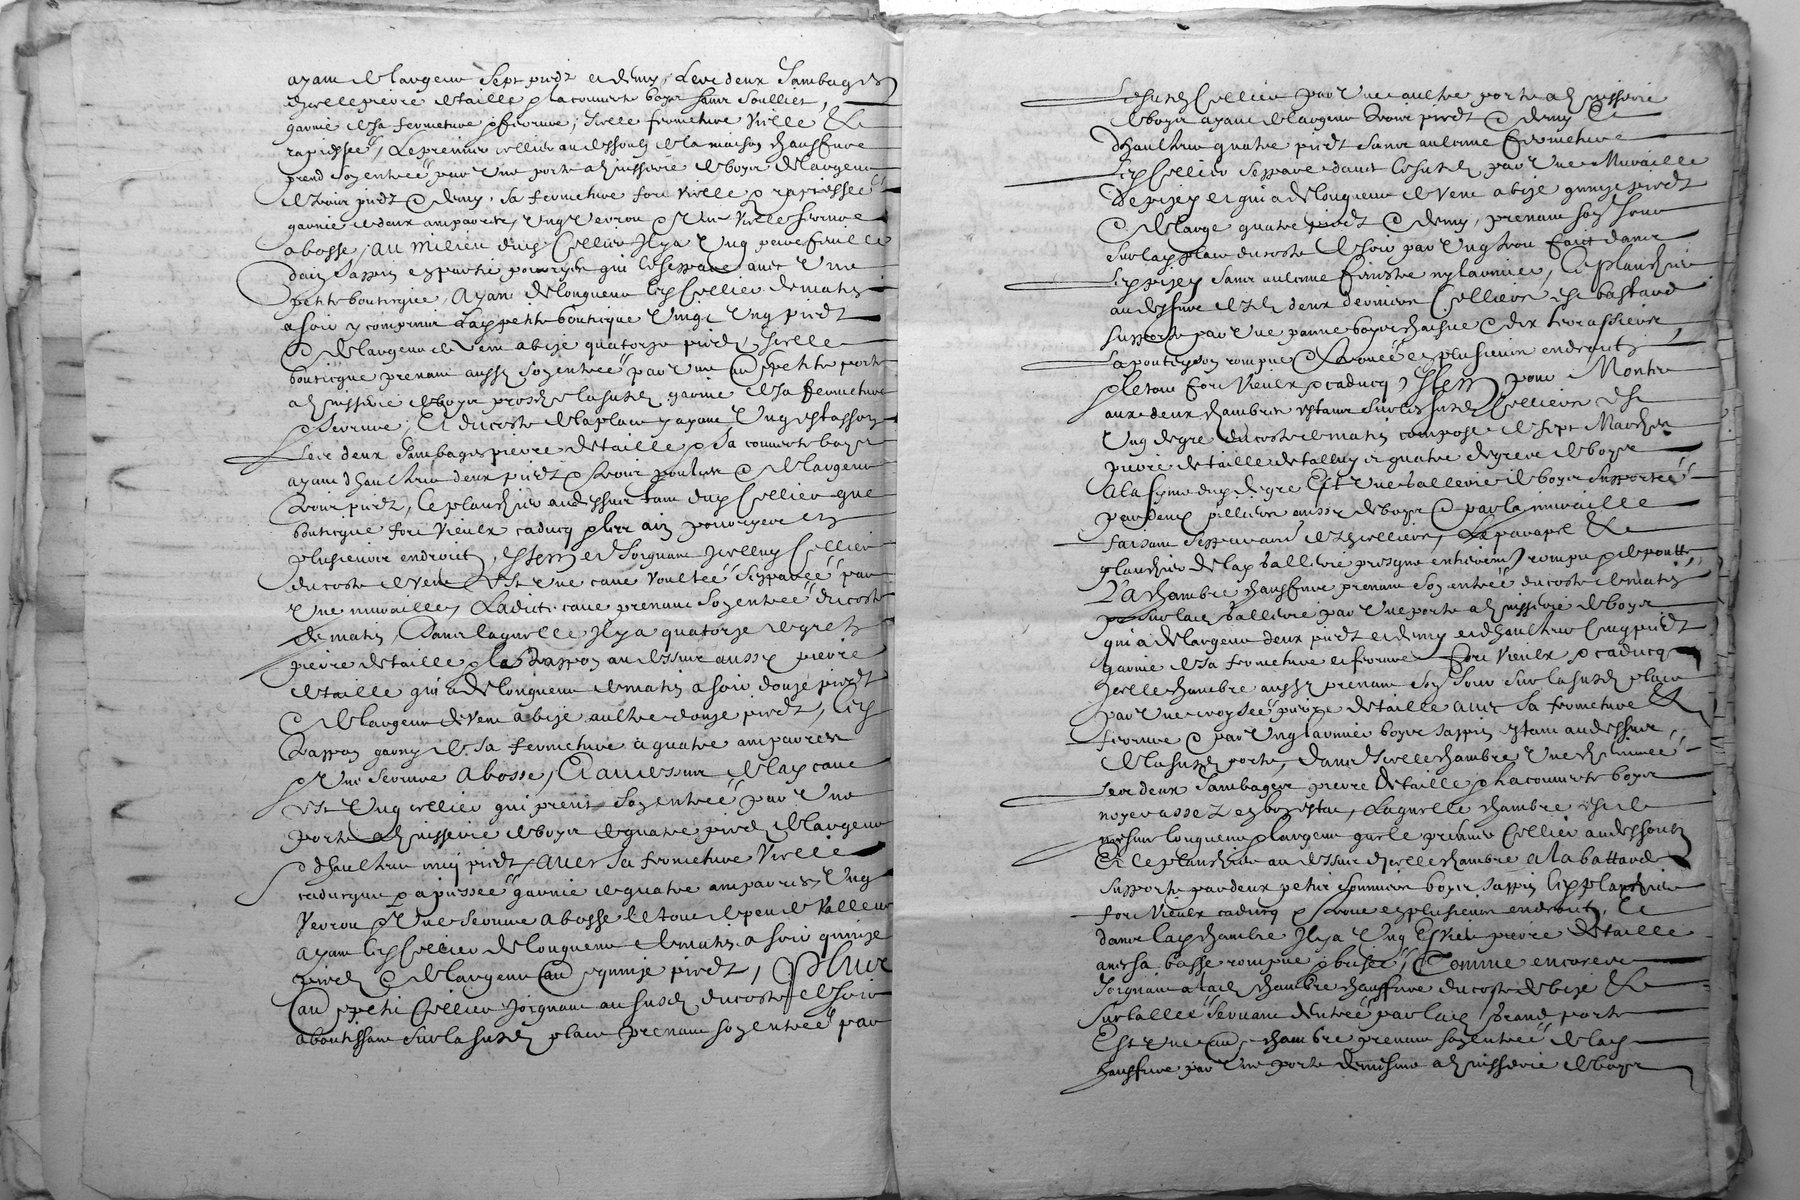 ayant de largeur sept piedz et demy, les deux Jambages
d'icelle pierre de taille & la couverte boys sans soullier,
garnie de sa fermeture & ferrure, icelle fermeture vielle &
rapiessée, Le premier cellier au dessoubz de la maison chauffure
prend son entrée par une porte a huisserie de boys de largeur
de trois piedz & demy, sa fermeture fort vielle & rapiessée
garnie de deux amparres, ung verrou & une vielle ferrure
a bosse, au milieu dud cellier Il y a ung
d'aix sappin en partie pourrys qui le seppare avec une
petite bouticque, ayant de longueur led cellier de matin
a soir y comprins lad petite bouticque vingt ung piedz
& de largeur de vent a bize quatorze piedz, icelle
bouticque prenant aussy son entrée par une petite porte
a huisserie de boys proche la susd garnie de sa fermeture
& ferrure, Et du costé de la place y ayant ung estasson
les deux Jambages pierre de taille & sa couverte boys
ayant d'haulteur deux piedz & trois poulces & de largeur
trois piedz, le planchier au dessus tant dud cellier que
bouticque fort vieulx caducq & les aix pourrys en
plusieurs endroitz, Item et Joignant icelluy cellier
du costé de vent est une cave voultée sepparée par
une muraille, Ladicte cave prenant son entrée du costé
de matin, dans laquelle Il y a quatorze degrez
pierre de taille & la trappon au dessus aussy pierre
de taille qui a de longueur de matin a soir douze piedz
& de largeur de vent a bize aultre douze piedz, led
trappon garny de sa fermeture a quatre amparres
& une serrure a bosse, Et au dessus de lad cave
est ung cellier qui prent son entrée par une
porte a huisserie de boys de quatre piedz de largeur
& d'haulteur piedz, avec sa fermeture vielle
caducque & rapiessée garnie de quatre amparres, ung
verrou & une serrure a bosse le tout de peu de valleur
ayant led cellier de longueur de matin a soir quinze
piedz & de largeur quinze piedz, Plus
petit cellier Joignant au susd du costé de soir
aboutissant sur la susd place prenant son entrée par
le susd cellier par une aultre porte a huisserie
de boys ayant de largeur trois piedz & demy &
d'haulteur quatre piedz sans aulcune fermeture
led cellier seppare davec le susd par une muraille
de et qui a de longueur de vent a bize quinze piedz
& de large quatre piedz & demy, prenant son jour
sur lad place du costé de soir par ung trou faict dans
sans aulcune fenestre ny larmier, le planchier
au dessus desd deux derniers celliers est bastard
supporté par une panne boys chasne & dix trerassieres
rompue & trouée en plusieurs endroitz
& le tout fort vieulx & caducq, Item pour monter
aux deux chambres estans sur les susd celliers est
ung degré du costé de matin composé de sept marches
pierre de taille et quatre degrez de boys
a la syme dud degré est une gallerie de boys supportée
par deux pilliers aussy de boys & par la muraille
faisant sepparation desd celliers, Le parapel &
planchier de lad gallerie presque entierement rompu &
La chambre chauffure prenant son entrée du costé de matin
sur lad gallerie par une porte a huisserie de boys
qui a de largeur deux piedz et demy et d'haulteur cinq piedz
garnie de sa fermeture et ferrure fort vieulx & caducq
icelle chambre aussy prenant son jour sur la susd place
par une croysée pierre de taille avec sa fermeture &
ferrure & par ung larmier boys sappin estant au dessus
de la susd porte, dans icelle chambre une cheminée
les deux Jambages pierre de taille & la couverte boys
noyer assez en bon estat, Laquelle chambre est de
mesme longueur & largeur que le premier cellier au dessoubz
Et le planchier au dessus d'icelle chambre a la battarde
supporté par deux petitz sommiers boys sappin led planchier
fort vieulx caducq & troué en plusieurs endroitz, Et
dans lad chambre Il y a ung pierre de taille
avec sa basse rompue & brisée, Comme encores
Joignant a lad chambre chauffure du costé de bize &
sur l'allée servant d'entrée par lad grand porte
Est une chambre prenant son entrée de lad
chauffure par une porte de mesme a huisserie de boys